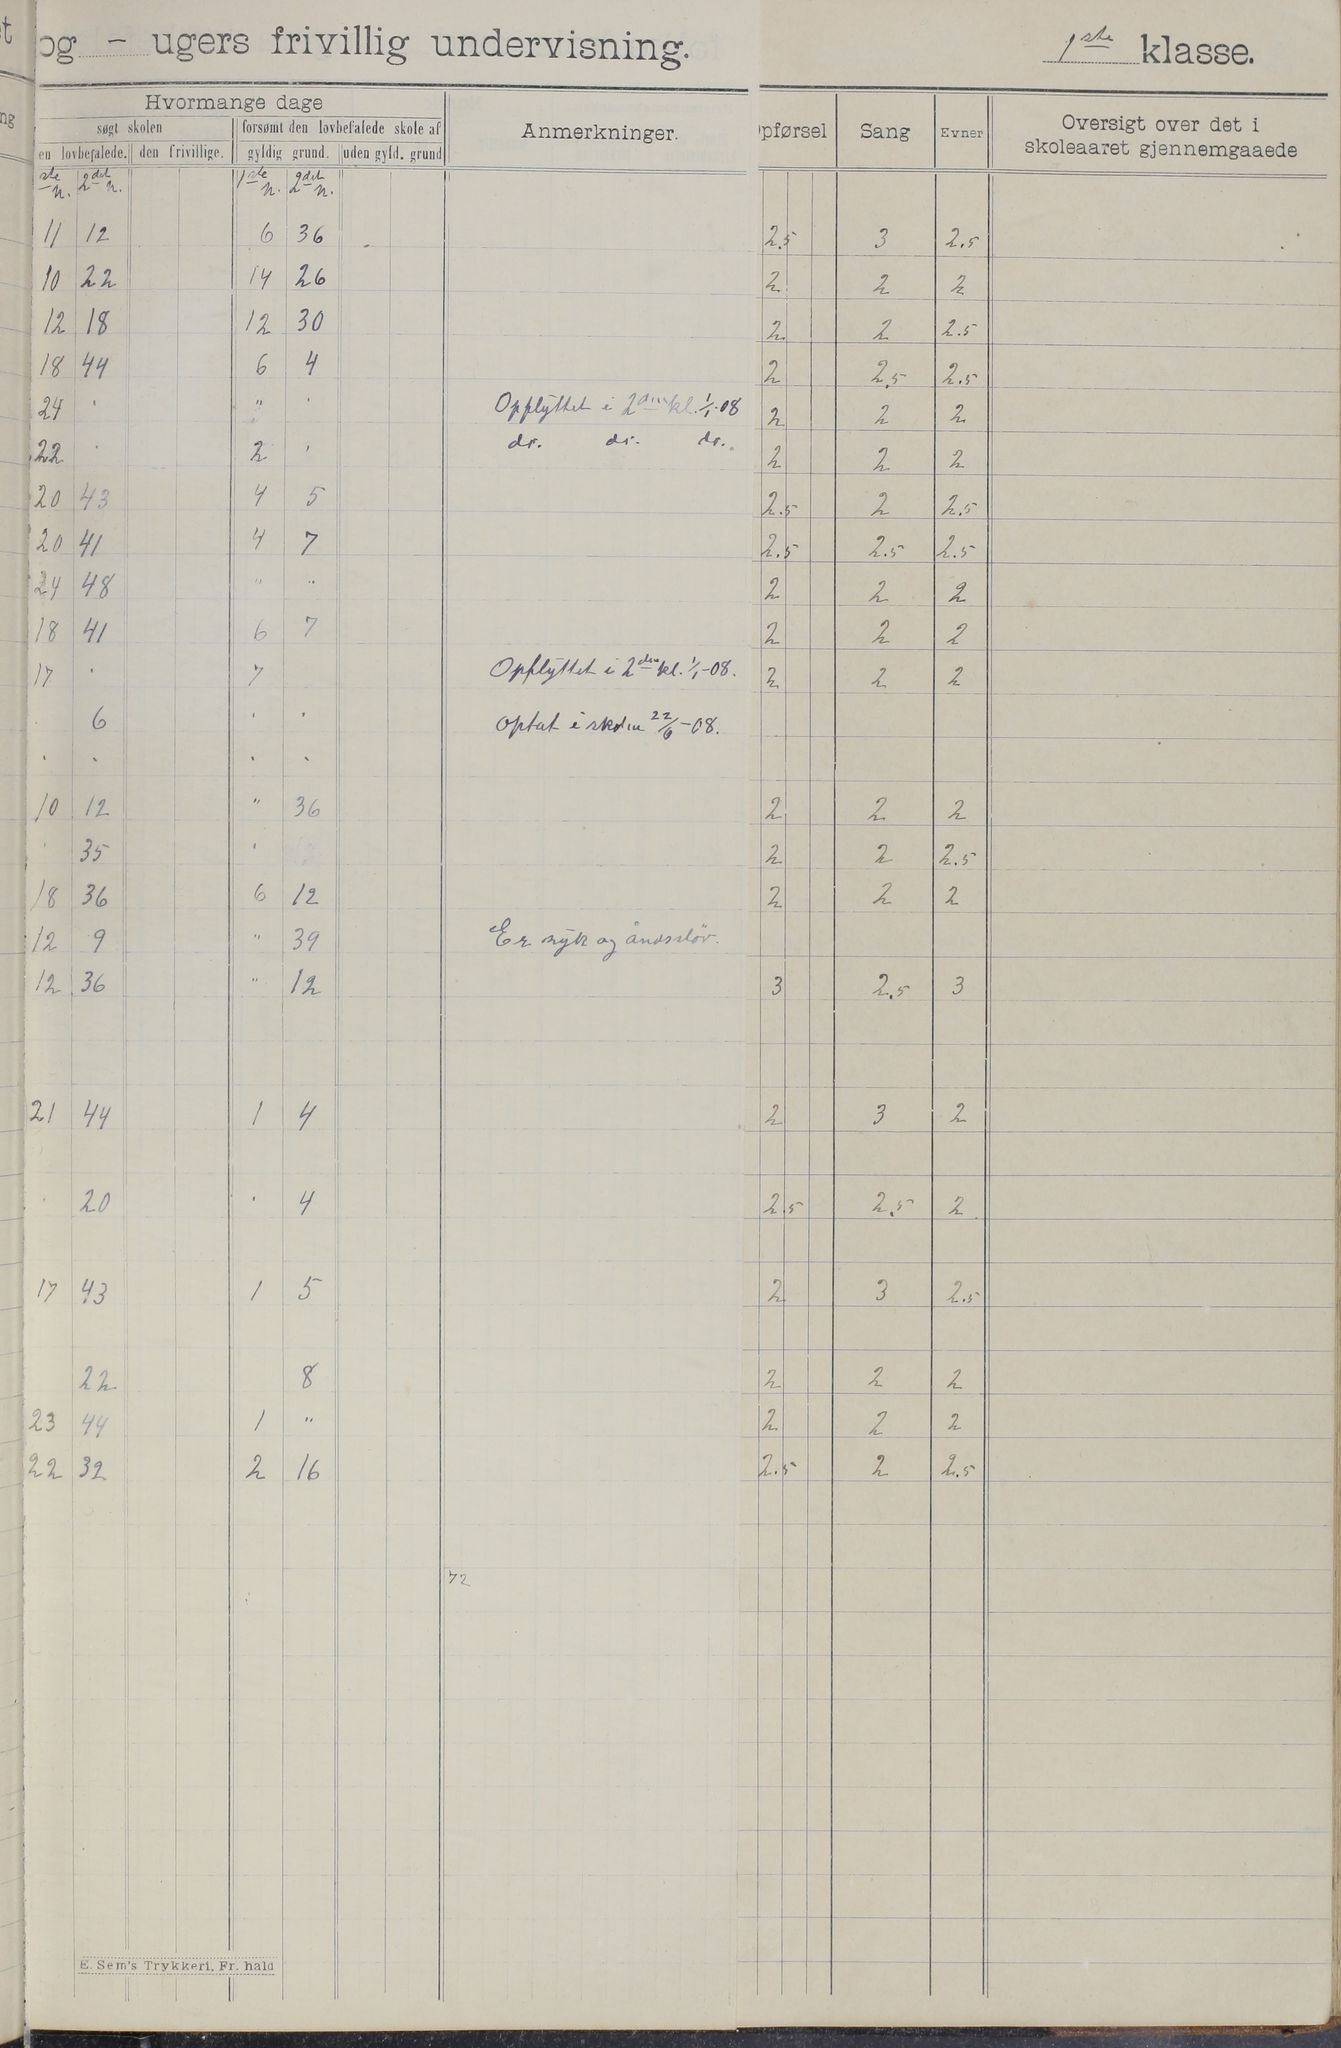 og - ugers frivillig undervisning. 1ste klasse.
Hvormange dage
søgt skolen forsømt den lovbefalede skole af Anmerkninger. pførsel Sang Evner Oversigt over det i
en lovbefalede. den frivillige. gyldig grund. uden gyld. grund skoleaaret gjennemgaaede
ste n. 2det n. 1ste n. 2det n.
11 12 6 36 2.5 3 2.5
10 22 14 26 2 2 2
12 18 12 30 2 2 2.5
18 44 6 4 2 2.5 2.5
24 " " " Opflyttet i 2den kl. 1/1-08 2 2 2
22 " 2 " do. do. do. 2 2 2
20 43 4 5 2.5 2 2.5
20 41 4 7 2.5 2.5 2.5
24 48 " " 2 2 2
18 41 6 7 2 2 2
17 " 7 Opflyttet i 2den kl. 1/1-08. 2 2 2
" 6 " " Optat i skolen 22/6-08.
" " " "
10 12 " 36 2 2 2
" 35 " 2 2 2.5
18 36 6 12 2 2 2
12 9 " 39 Er syk og åndssløv.
12 36 " 12 3 2.5 3
21 44 1 4 2 3 2
" 20 " 4 2.5 2.5 2
17 43 1 5 2 3 2.5
22 8 2 2 2
23 44 1 " 2 2 2
22 32 2 16 2.5 2 2.5
72
E. Sem's Trykkeri, Fr. hald